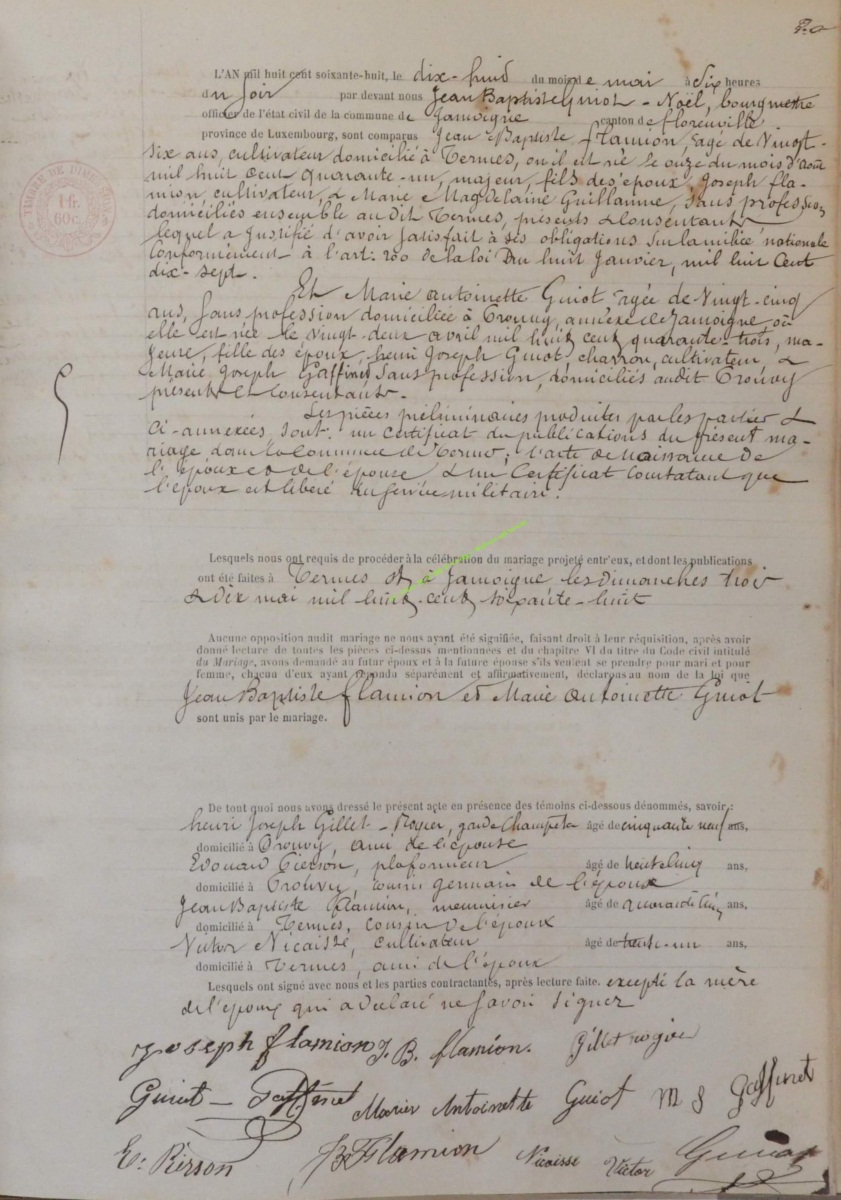 20
L'AN mil huit cent soixante-huit, le dix-huit du mois de mai à six heures
du soir par devant nous Jean Baptiste Guiot-Noël, bourgmestre
officier de l'état civil de la commune de Jamoigne canton de florenville
province de Luxembourg, sont comparus Jean Baptiste flamion, agé de Vingt-
six ans, cultivateur domicilié à Termes, où il est né le onze du mois d'août
mil huit cent quarante-un, majeur, fils des époux, Joseph fla-
mion, cultivateur, & Marie Magdelaine Guillaume, sans profession
domiciliés ensemble audit Termes, présents & Consentants
lequel a justifié d'avoir satisfait à ses obligations sur la milice nationale
Conformément à l'art: 200 de la loi du huit Janvier, mil huit Cent
dix-sept.
Et Marie antoinette Guiot agée de Vingt-cinq
ans, sans profession domiciliée à Prouvy, annèxe de Jamoigne, où
elle est née le vingt-deux avril mil huit cent quarante-trois, ma-
jeure, fille des époux, henri Joseph Guiot, charron, cultivateur, &
Marie Joseph Gaffinet sans profession, domiciliés audit Prouvy
présents et Consentants.
Les pièces préliminaires produites par les parties &
ci-annexées, sont: un certificat de publications du présent ma-
riage dans la Commune de Termes; l'acte de naissance de
l'époux et de l'épouse & un Certificat Constatant que
l'époux est libéré du service militaire.
TIMBRE DE DIMENSION
1 fr.
60c.
Lesquels nous ont requis de procéder à la célébration du mariage projeté entr'eux, et dont les publications
ont été faites à Termes et à Jamoigne les Dimanches trois
& Dix mai mil huit-cent soixante-huit
Aucune opposition audit mariage ne nous ayant été signifiée, faisant droit à leur réquisition, après avoir
donné lecture de toutes les pièces ci-dessus mentionnées et du chapitre VI du titre du Code civil intitulé
du Mariage, avons demandé au futur époux et à la future épouse s'ils veulent se prendre pour mari et pour
femme, chacun d'eux ayant répondu séparément et affirmativement, déclarons au nom de la loi que
Jean Baptiste flamion et Marie antoinette Guiot
sont unis par le mariage.
De tout quoi nous avons dressé le présent acte en présence des témoins ci-dessous dénommés, savoir:
henri Joseph Gillet-Rogier, garde Champêtre âgé de cinquante neuf ans,
domicilié à Prouvy, ami de l'épouse
Edouard Pierson, plafonneur âgé de ans,
domicilié à Prouvy, cousin germain de l'épouse
Jean Baptiste flamion, meunisier âgé de quarante cinq ans,
domicilié à Termes, cousin de l'époux
Victor Nicaisse, cultivateur âgé de trente-un ans,
domicilié à Termes, ami de l'époux
Lesquels ont signé avec nous et les parties contractantes, après lecture faite. excepté la mère
de l'époux qui a déclaré ne savoir signer
Joseph flamion J. B. flamion. Gillet rogier
Guiot - Gaffinet Marie Antoinette Guiot M J Gaffinet
E: Pierson JB Flamion Nicaisse Victor Guiot